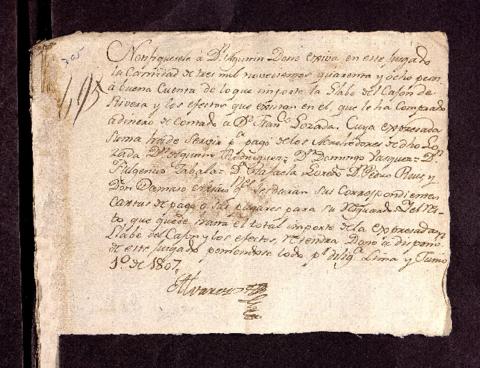 305
495
Notifiquesele á Dn. Joaquin Dono exiva en este Juzgado
la Cantidad de tres mil novecientos quarenta y ocho pesos
á buena Cuenta de lo que importe la llabe del Cajon de
Rivera y los efectos que existan en el, que le ha Comprado
á dinero de Contado á Dn. Franco. Lozada. Cuya expresada
suma ha de servir pa. pago de los Acrehedores de dho Lo-
zada Dn. Joaquin Rodriguez, Dn. Domingo Vasquez, Dn.
Fulgencio Zabala, Da. Rafaela Dn. Pedro Ruis y
Don Damaso se le daran sus Correspondientes
Cartas de pago o Lugares para su resguardo, y el res-
to que quede hasta el total importe de la expresada
llabe del Cajon y los efectos, retendra Dono á disposn.
de este Juzgado poniendose todo pr. diliga. Lima y Junio
1º. de 1807.
Alvarez